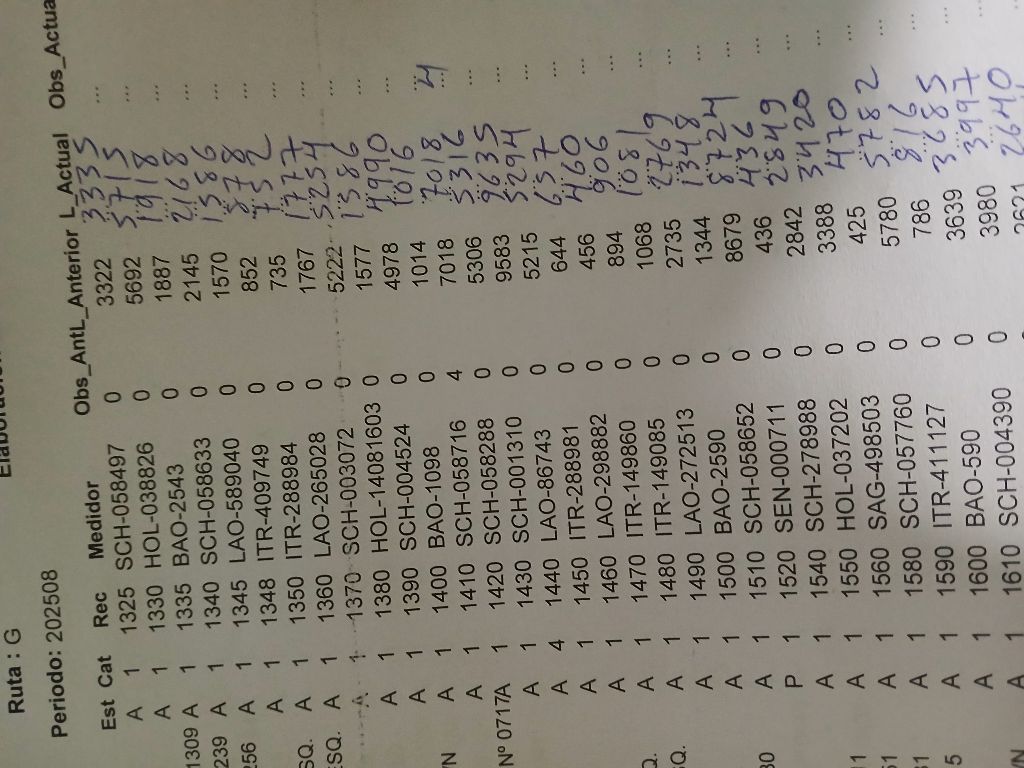 Elaboración
Ruta : G
Periodo: 202508
Est Cat Rec Medidor Obs_AntL_Anterior L_Actual Obs_Actua
A 1 1325 SCH-058497 0 3322 3335 ...
A 1 1330 HOL-038826 0 5692 5715 ...
1309 A 1 1335 BAO-2543 0 1887 1918 ...
239 A 1 1340 SCH-058633 0 2145 2168 ...
256 A 1 1345 LAO-589040 0 1570 1586 ...
A 1 1348 ITR-409749 0 852 878 ...
SQ. A 1 1350 ITR-288984 0 735 752 ...
ESQ. A 1 1360 LAO-265028 0 1767 1777 ...
A 1 1370 SCH-003072 0 5222 5254 ...
A 1 1380 HOL-14081603 0 1577 1586 ...
A 1 1390 SCH-004524 0 4978 4990 ...
/N A 1 1400 BAO-1098 0 1014 1016 ...
A 1 1410 SCH-058716 4 7018 7018 4
Nº 0717A 1 1420 SCH-058288 0 5306 5316 ...
A 1 1430 SCH-001310 0 9583 9635 ...
A 4 1440 LAO-86743 0 5215 5294 ...
A 1 1450 ITR-288981 0 644 657 ...
A 1 1460 LAO-298882 0 456 460 ...
Q. A 1 1470 ITR-149860 0 894 906 ...
SQ. A 1 1480 ITR-149085 0 1068 1081 ...
A 1 1490 LAO-272513 0 2735 2769 ...
A 1 1500 BAO-2590 0 1344 1348 ...
30 A 1 1510 SCH-058652 0 8679 8724 ...
P 1 1520 SEN-000711 0 436 436 ...
A 1 1540 SCH-278988 0 2842 2849 ...
11 A 1 1550 HOL-037202 0 3388 3420 ...
A 1 1560 SAG-498503 0 425 470 ...
31 A 1 1580 SCH-057760 0 5780 5782 ...
5 A 1 1590 ITR-411127 0 786 816 ...
A 1 1600 BAO-590 0 3639 3685 ...
/N A 1 1610 SCH-004390 0 3980 3997 ...
2621 2640